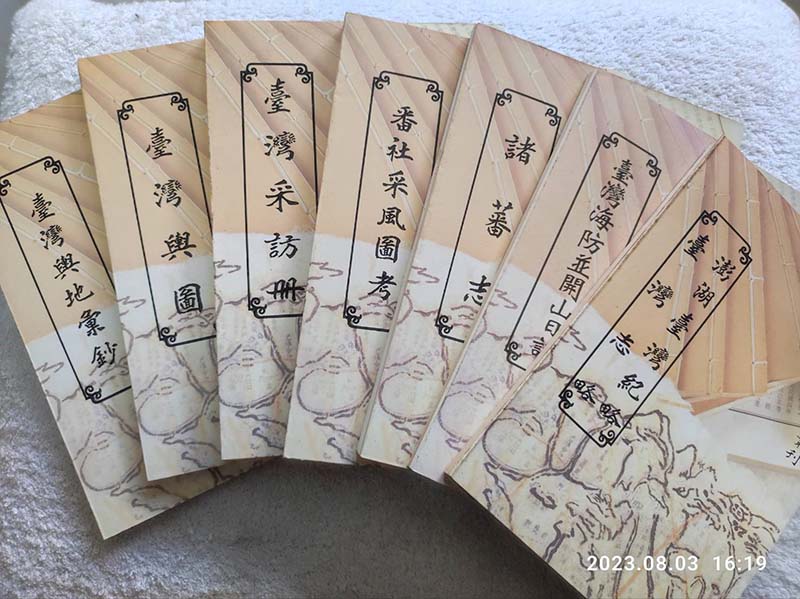 臺灣輿地彙鈔
臺灣輿圖
臺灣采訪冊
番社采風圖考
諸蕃志
臺灣海防並開山日記
澎湖臺灣紀略
臺灣志略
刊
2023.08.03 16:19